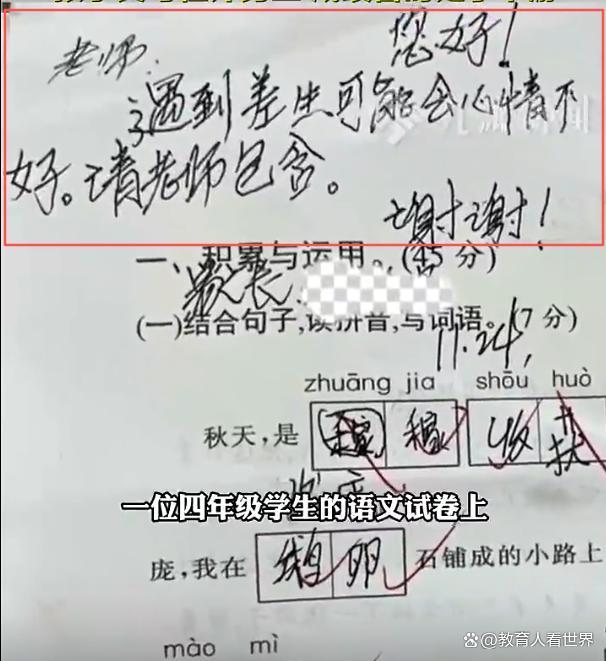 老师: 您好!
遇到差生可能会心情不
好。请老师包含。
谢谢!
一、积累与运用。(45 分)
家长:
(一)结合句子,读拼音,写词语。(7 分)
11.24,
zhuāng jia shōu huò
秋天,是 稼 收
一位四年级学生的语文试卷上
庞,我在 鹅 卵 石铺成的小路上
mào mì
@教育人看世界